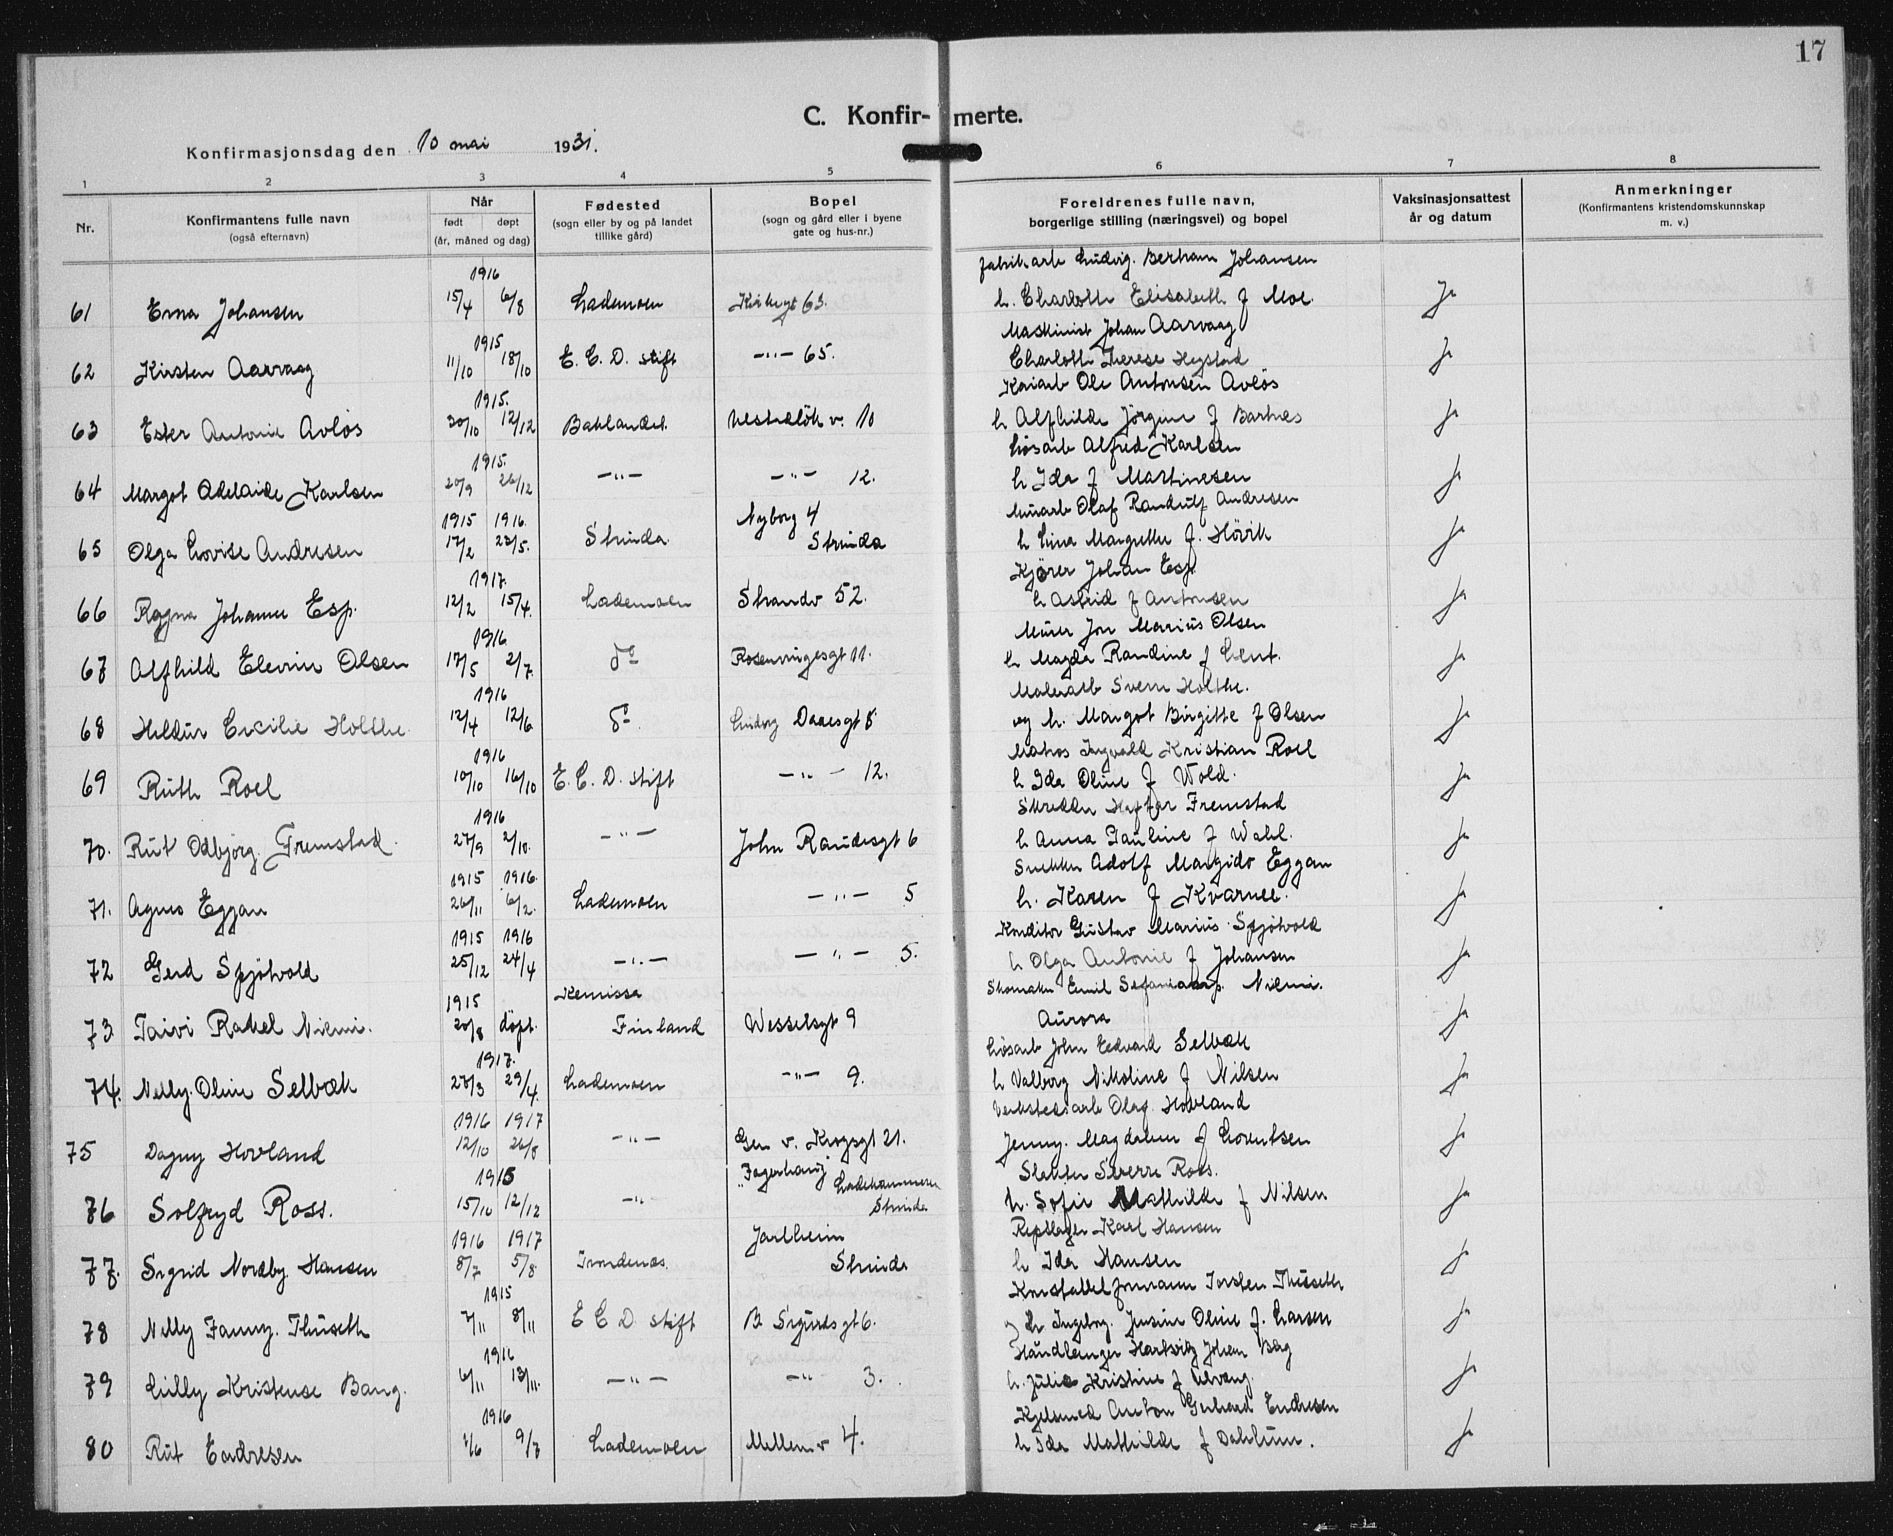 17
C. Konfirmerte.
Konfirmasjonsdag den 10 mai 1931.
1 2 3 4 5 6 7 8
Nr. Konfirmantens fulle navn (også efternavn) Når født døpt (år, måned og dag) Fødested (sogn eller by og på landet tillike gård) Bopel (sogn og gård eller i byene gate og hus-nr.) Foreldrenes fulle navn, borgerlige stilling (næringsvei) og bopel Vaksinasjonsattest år og datum Anmerkninger (Konfirmantens kristendomskunnskap m. v.)
1916 Ludvig Johansen
61 Erna Johansen 15/4 6/8 Lademoen 63. h. Charlotte Elisabeth f Moe Ja
1915 Maskinist Johan Aarvaag
62 Kirsten Aarvaag 11/10 18/10 E. C. D. stift -"- 65. Charlotte Therese Ja
1915. Ole Antonsen Avløs
63 Ester Antonie Avløs 30/10 12/12 Baklandet h Alfhilde Jörgine f Bartnes Ja
1915. Løsarb Alfred Karlsen
64 Margot Adelaide Karlsen 20/9 26/12 -"- -"- 12. h Ida f Martinesen Ja
1915 1916. Nyborg 4 Murarb Olaf Randulf Andresen
65 Olga Lovise Andresen 17/2 23/5. Strinda Strinda h Lina Margrethe f. Hövik Ja
1917. Kjører Johan Esp.
66 Ragna Johanne Esp. 12/2 15/4. Lademoen Strandv 52. h Astrid f Antonsen Ja
1916 Murer Jon Marius Olsen
67 Alfhild Elevine Olsen 17/5 2/7. do Rosenvingesgt 11. h Magda Randine f Ja
1916 Malerarb Sverre Holthe.
68 Hildur Cecilie Holthe. 12/4 12/6 do Ludvig Daaesgt 8 og h. Margot Birgitte f Olsen Ja
1916 Matros Ingvald Kristian Roel
69 Ruth Roel 10/10 16/10 E. C. D. stift -"- 12. h Ida Oline f Wold. Ja
1916 Skredder Fremstad
70. Rut Odbjørg. Fremstad. 27/9 2/10. -"- John Raudesgt 6 h Anna Pauline f Wahl. Ja
1915 1916. Snekker Adolf Margido Eggan
71. Agnes Eggan 26/11 6/2. Lademoen -"- 5 h. Karen f Kvarnee. Ja
1915 1916 Konditor Gustav Marius Spjötvold
72 Gerd Spjötvold 25/12 24/4 -"- -"- 5. h Olga Antonie f Johansen Ja
1915 Kemissa Skomaker Emil Niemi.
73 Taivi Rakel Niemi. 20/8 döpt. Finland Wesselsgt 9 Aurora Ja
1917. Løsarb John Edvard Selbæk
74. Nelly. Oline Selbæk 28/3 29/4. Lademoen -"- 9. h Valborg Nikoline f Nilsen Ja
1916 1917 Verkstedsarb Olaf Hovland
75 Dagny Hovland 12/10 26/8 -"- Gen v. Krogsgt 21. Jenny. Magdalene f Lorentsen Ja
1915 Fagerhaug Ladehammeren Sverre Ross.
76 Solfryd Ross. 15/10 12/12 -"- Strinda h. Sofie Mathilde f Nilsen Ja
1916 1917 Jarlheim Repslager Karl Hansen
77. Sigrid Nordby. Hansen 8/7 5/8 Trondenes. Strinda h Ida Hansen Ja
1915 Torsten Thuseth
78 Nelly Fanny. Thuseth 7/11 8/11 E C D stift B Sigurdsgt 6. h Ingeborg. Jensine Oline f. Larsen Ja
1916 Håndlanger Hartvig Johan Bag
79 Lilly Kristense Bang. 6/11 13/11. -"- -"- 3. h. Julie Kristine f Ja
1916 Kjelsmed Anton Gerhard Endresen
80 Rut Endresen 1/6 9/7 Lademoen Mellemv 4. h Ida Mathilde f Dahlum. Ja